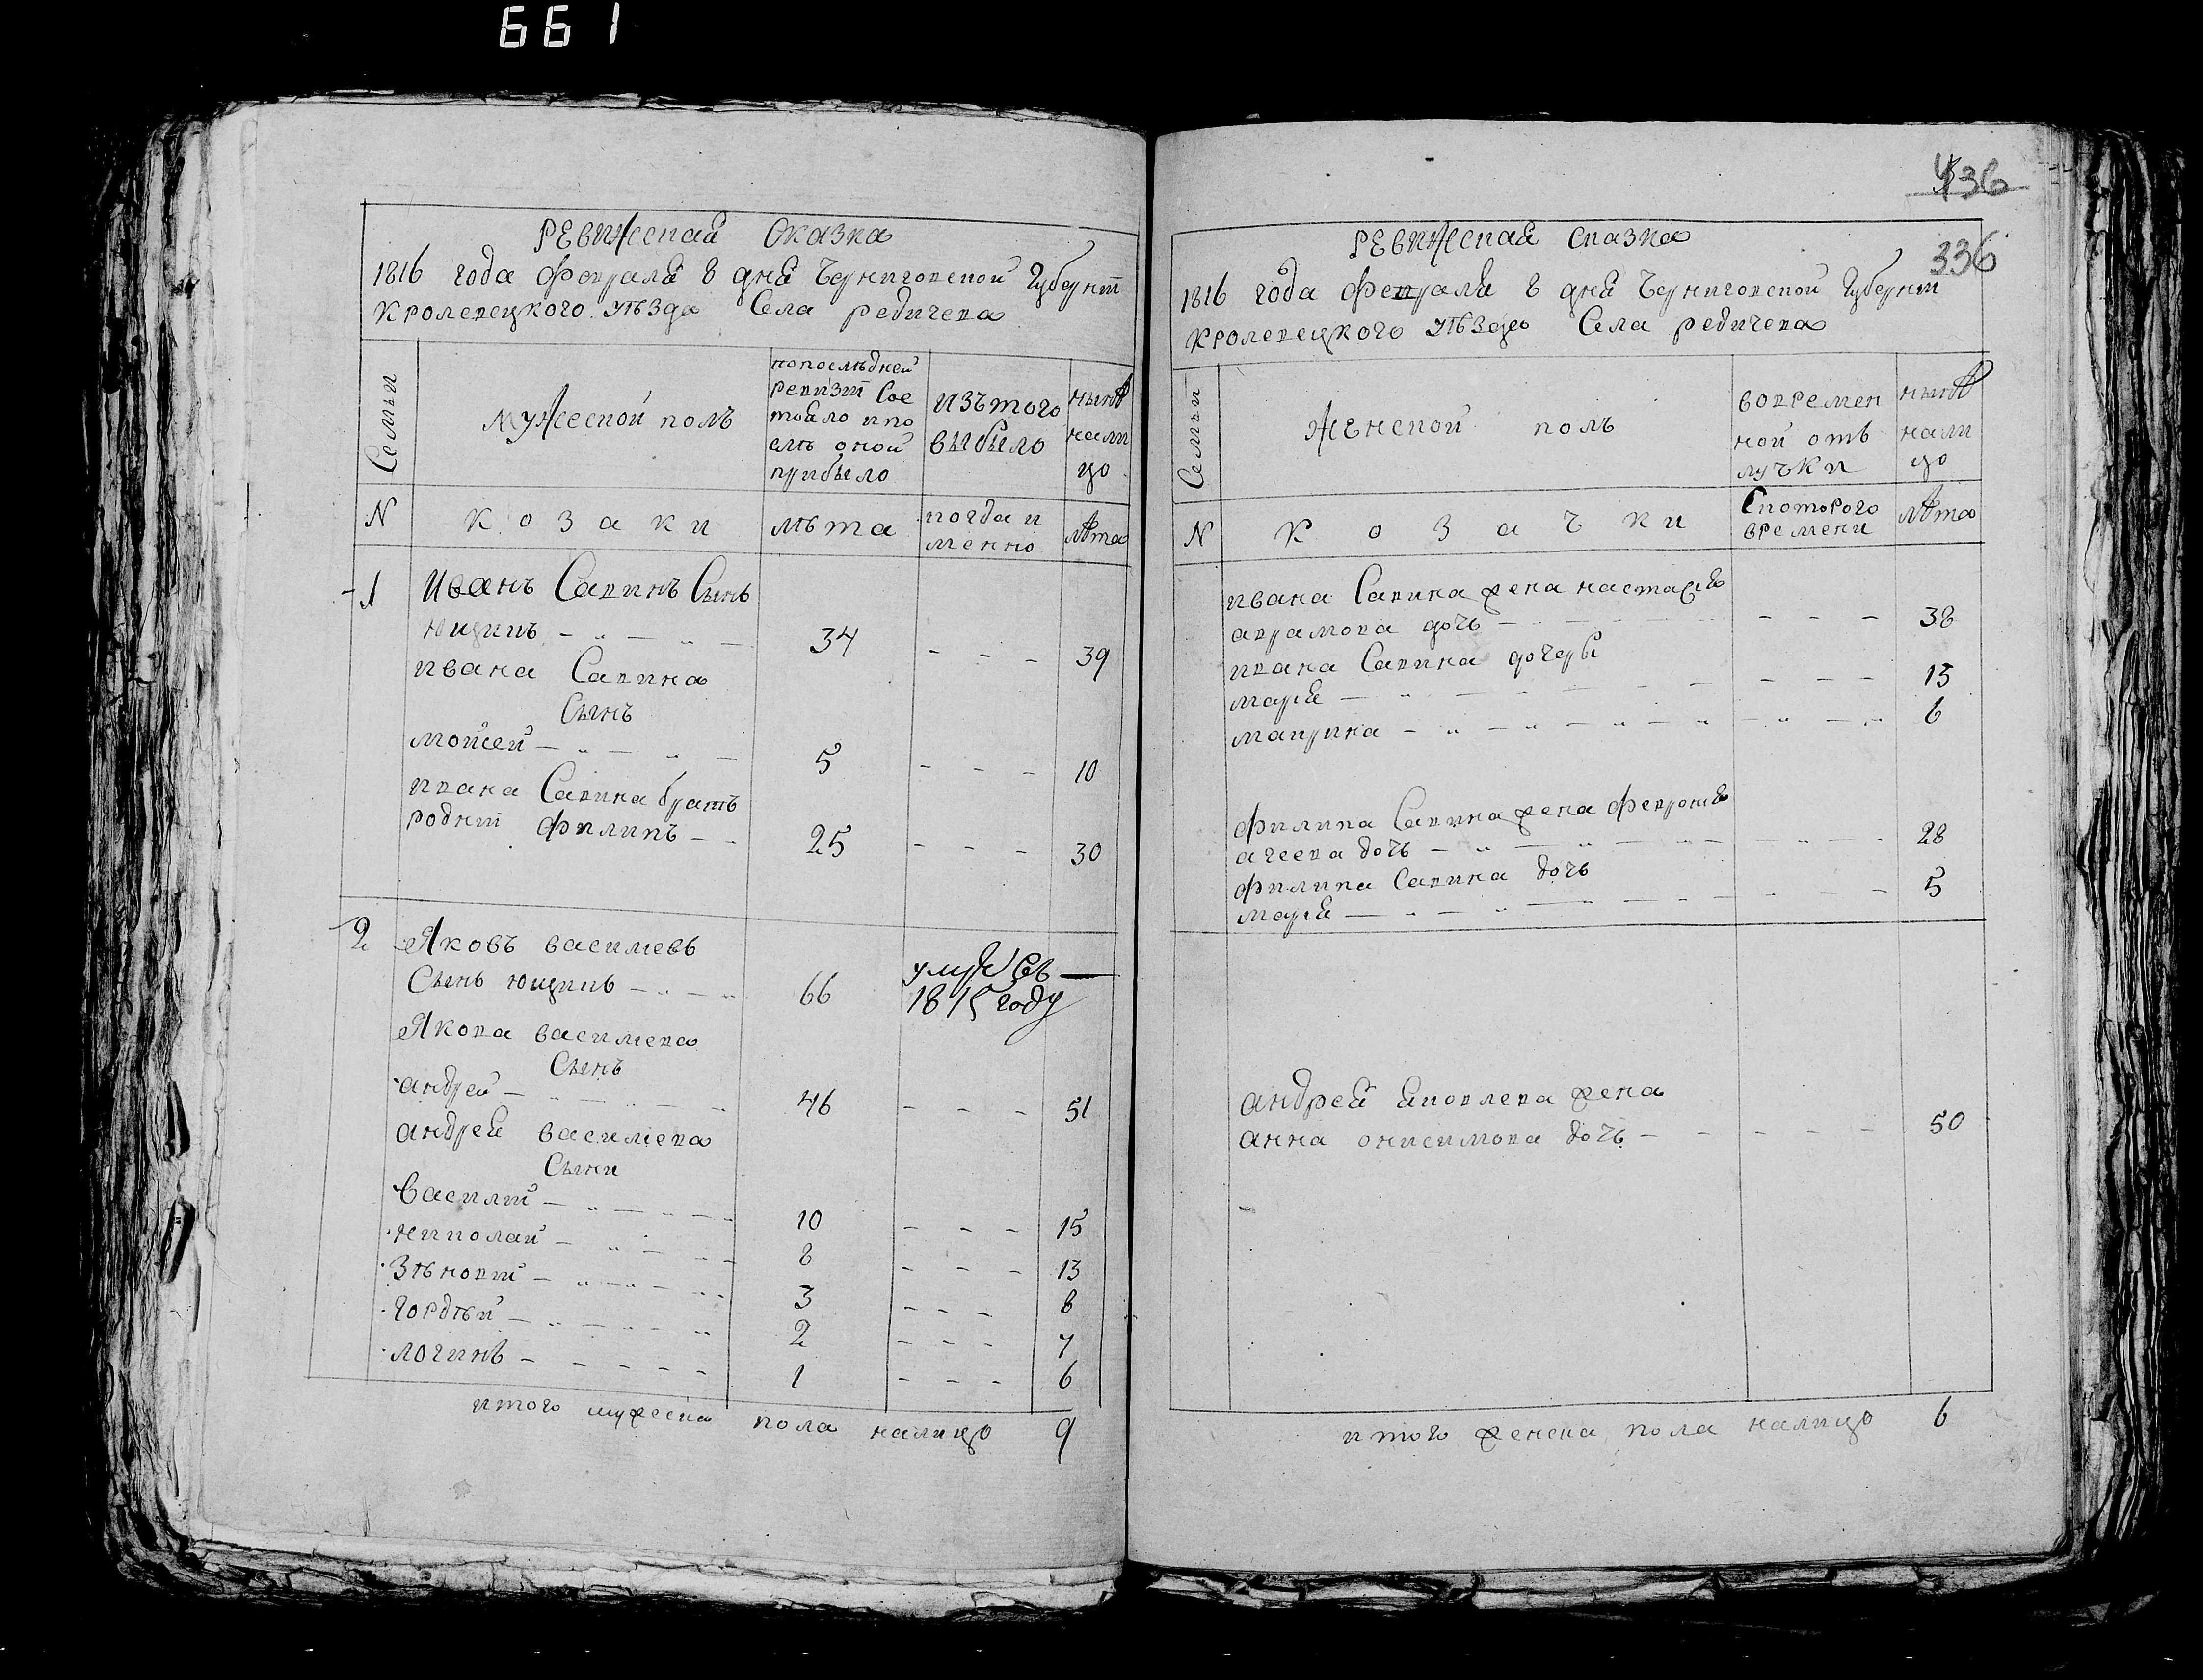 661
РЕВИЖСКАЯ СКАЗКА
1816 года февраля 8 дня Черниговской Губерніи
Кролевецкого уѣзда Села редичева
Семьи
мужеской полъ
попослѣдней
ревизіи Сос
тояло ипо
слѣ оной
прибыло
изътого
выбыло
нынѣ
нали
цо
N
козаки
лѣта
когда и
менно
лѣта
1
Иванъ Савинъ Сынъ
34
39
ивана Савина
Сынъ
мойсей
5
10
ивана Савина братъ
родний филипъ
25
30
2
Яковъ василіевъ
Сынъ ющинъ
66
умре въ
1815 году
Якова василіева
Сынъ
андрей
46
51
андрея василіева
Сыни
Василій
10
15
николай
8
13
Зѣновій
3
8
гордѣй
2
7
логинъ
1
6
итого мужеска пола налицо 9
436
336
РЕВИЖСКАЯ сказка
1816 года февраля 8 дня Черниговской Губерніи
Кролевецкого уѣзда Села редичева
Семьи
женской полъ
вовремен
ной отъ
лучки
нынѣ
нали
цо
N
козачки
Скоторого
времени
лѣта
ивана Савина жена настасія
аврамова дочь
38
ивана Савина дочеры
марія
13
маврина
6
филипа Савина жена феврония
агеева дочь
28
филипа Савина дочь
марія
5
андрея яковлева жена
анна онисимова дочь
50
итого женска пола налицо 6